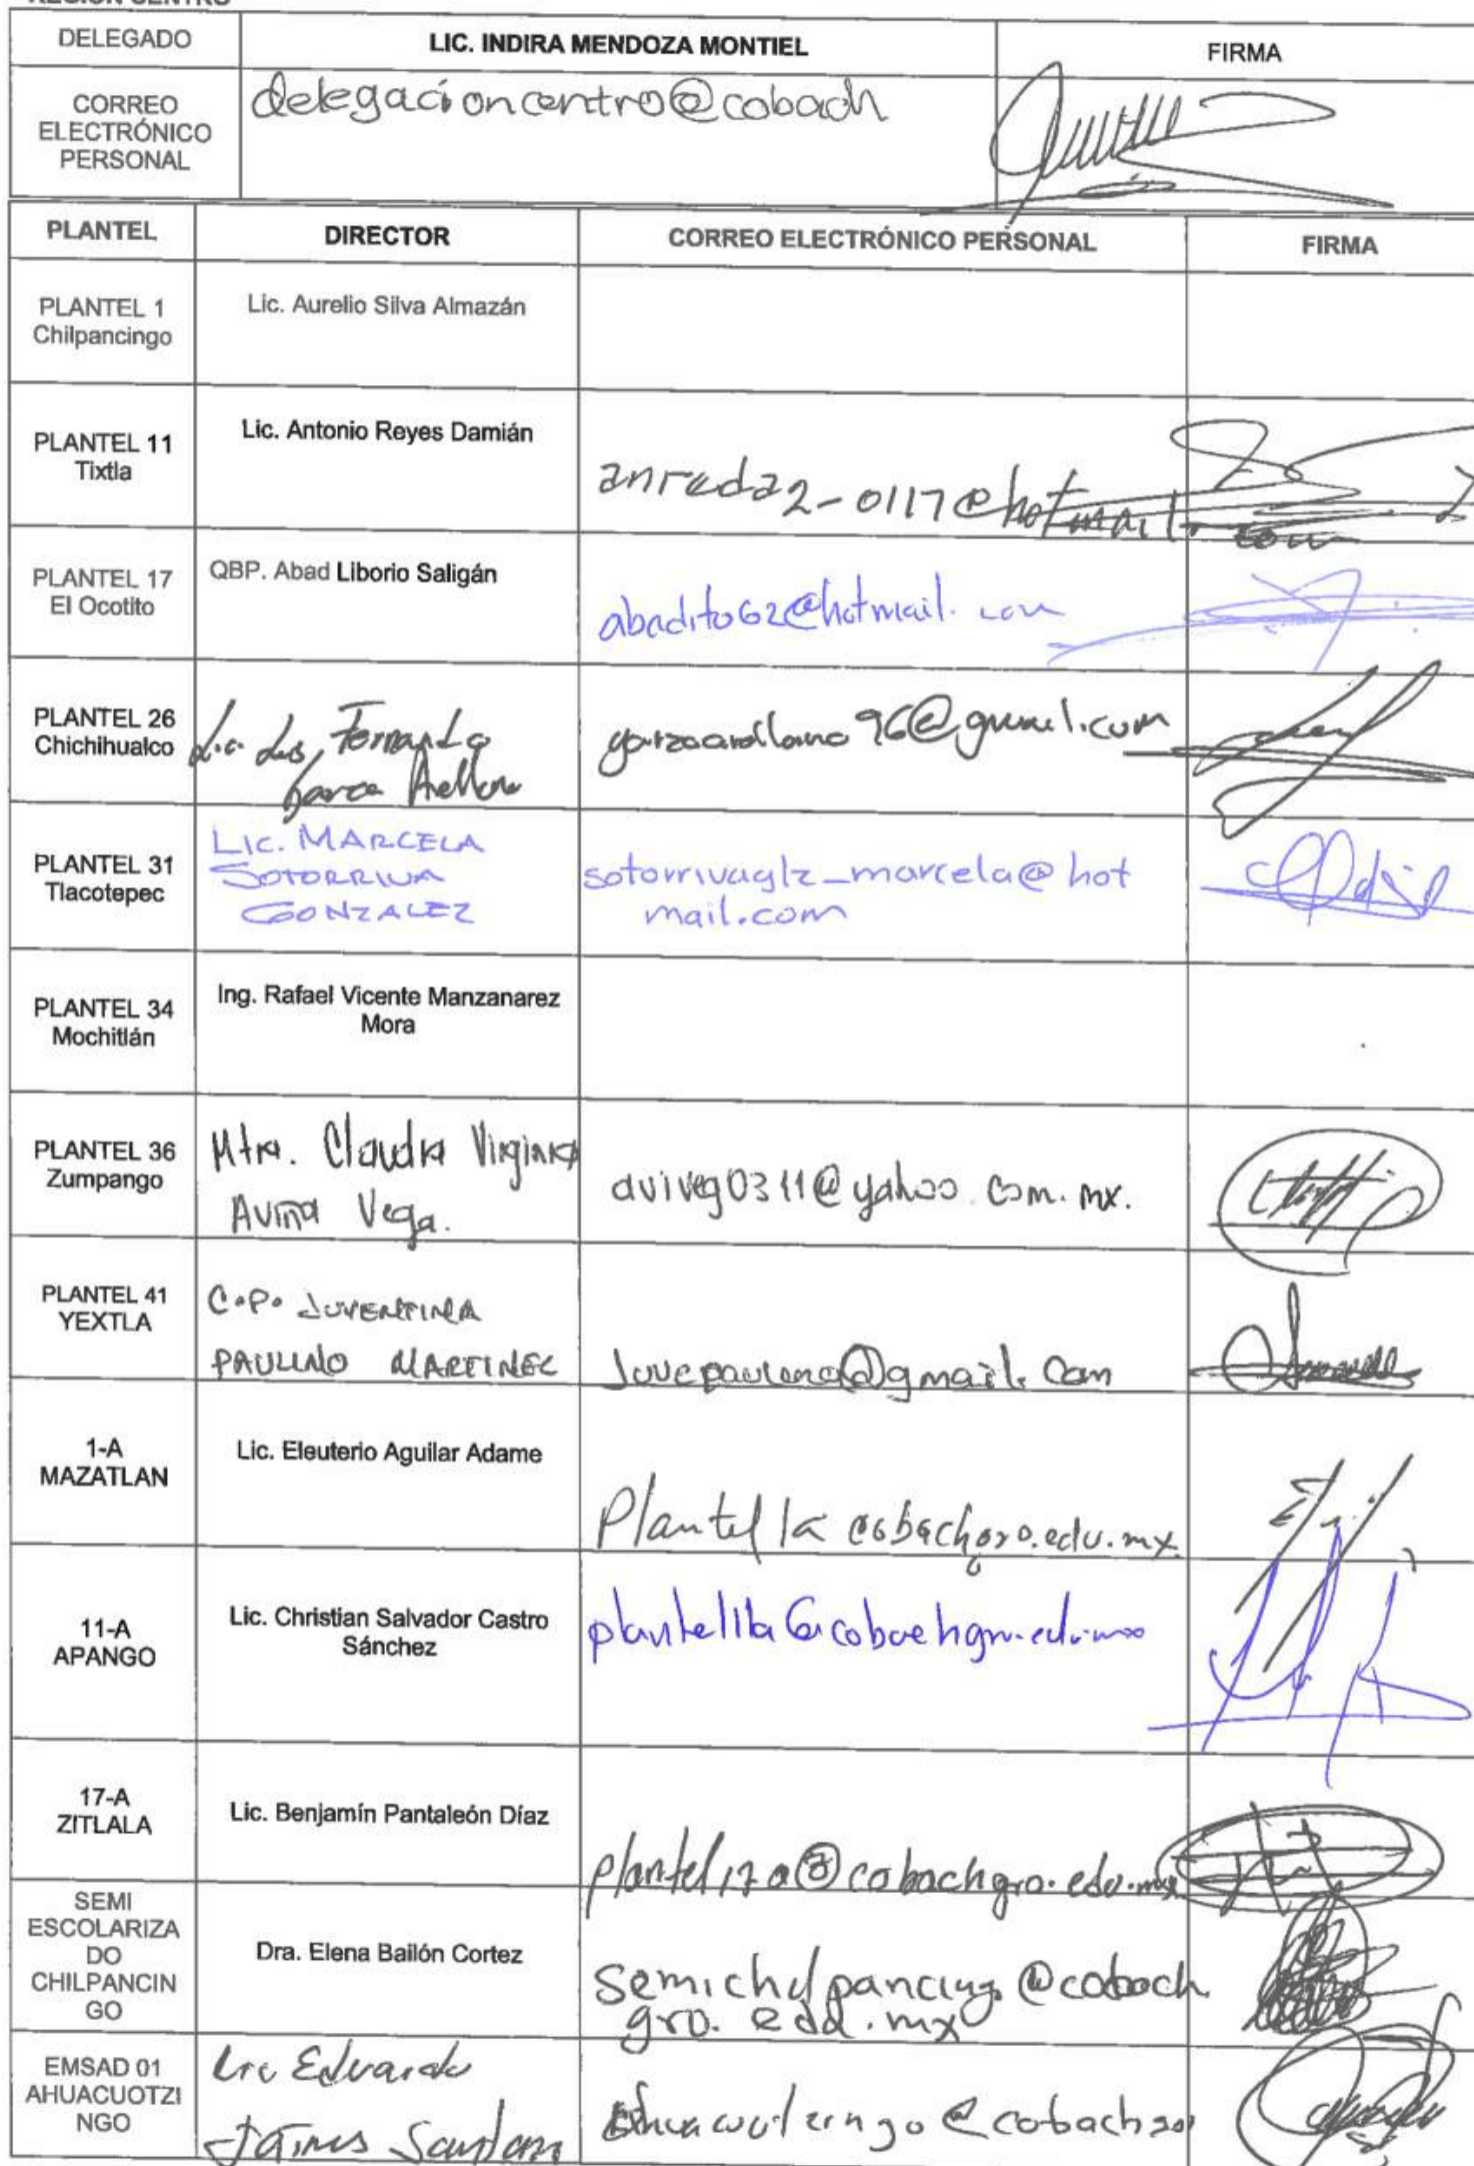 REGIÓN CENTRO
DELEGADO
LIC. INDIRA MENDOZA MONTIEL
FIRMA
CORREO
ELECTRÓNICO
PERSONAL
delegacioncentro@cobach
PLANTEL
DIRECTOR
CORREO ELECTRÓNICO PERSONAL
FIRMA
PLANTEL 1
Chilpancingo
Lic. Aurelio Silva Almazán
PLANTEL 11
Tixtla
Lic. Antonio Reyes Damián
anreda2-0117@hotmail.com
PLANTEL 17
El Ocotito
QBP. Abad Liborio Saligán
abadito62@hotmail.com
PLANTEL 26
Chichihualco
Lic. Luis Fernando
Garza Arellano
garzaarellano96@gmail.com
PLANTEL 31
Tlacotepec
LIC. MARCELA
SOTORRIVA
GONZALEZ
sotorrivaglz_marcela@hot
mail.com
PLANTEL 34
Mochitlán
Ing. Rafael Vicente Manzanarez
Mora
PLANTEL 36
Zumpango
Mtra. Claudia Virginia
Aviña Vega.
aviveg0311@yahoo.com.mx.
PLANTEL 41
YEXTLA
C.P. JUVENTINA
PAULINO MARTINEZ
Juvepaulino@gmail.com
1-A
MAZATLAN
Lic. Eleuterio Aguilar Adame
Plantel 1a cobachgro.edu.mx.
11-A
APANGO
Lic. Christian Salvador Castro
Sánchez
plantel11a@cobachgro.edu.mx
17-A
ZITLALA
Lic. Benjamín Pantaleón Díaz
plantel17a@cobachgro.edu.mx
SEMI
ESCOLARIZA
DO
CHILPANCIN
GO
Dra. Elena Bailón Cortez
semichilpancingo@cobach
gro.edu.mx
EMSAD 01
AHUACUOTZI
NGO
Lic Eduardo
Jaimes Santana